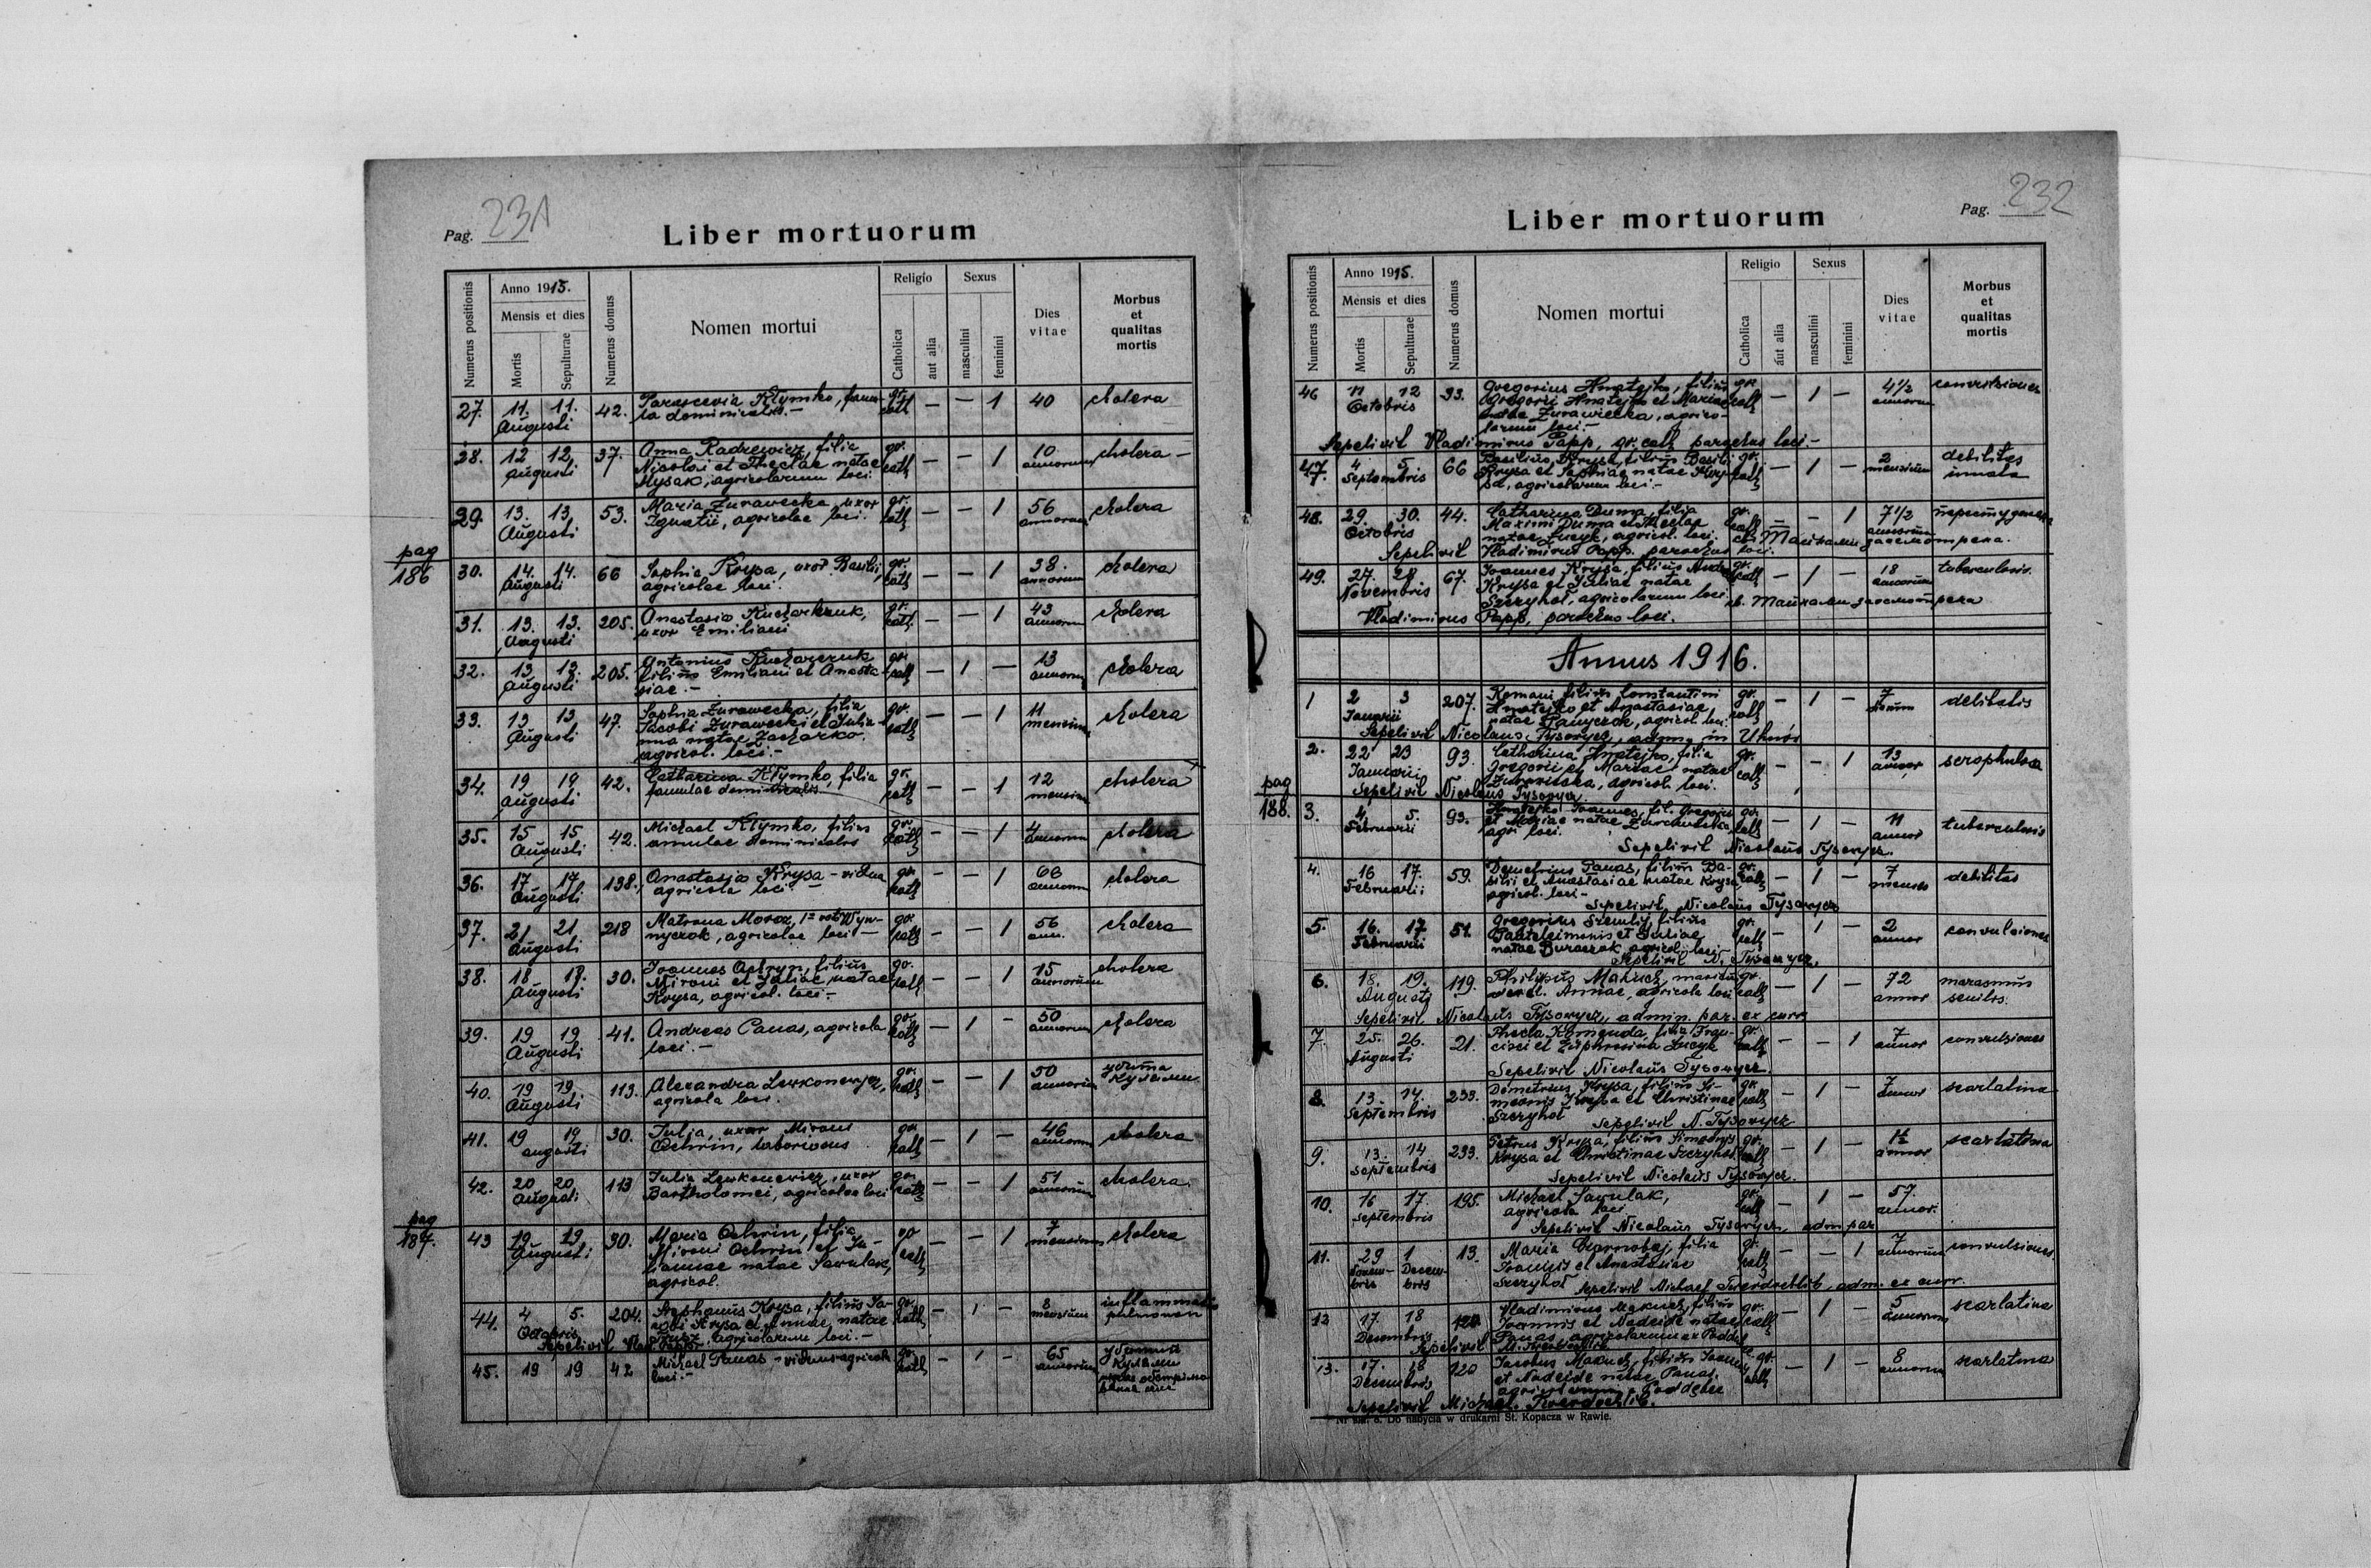 Pag. 231
Liber mortuorum
Numerus positionis
Anno 1915.
Mensis et dies
Mortis
Sepulturae
Numerus domus
Nomen mortui
Religio
Catholica
aut alia
Sexus
masculini
feminini
Dies vitae
Morbus et qualitas mortis
27. 11. 11. 42. Parascevia Klymko, famu- gr. — — 1 40 cholera
Augusti la dominicalis.— cath
28. 12 12. 37. Anna Radzewicz, filia gr. — — 1 10 cholera —
augusti Nicolai et Theclae natae cath annorum
Mysak, agricolarum loci.
29. 13. 13. 53. Maria Żurawecka, uxor gr. — — 1 56 cholera
Augusti Ignatii, agricolae loci. cath annorum
pag
186
30. 14. 14. 66 Sophia Krysa, uxor Basilii, gr. — — 1 38. cholera
Augusti agricolae loci. cath annorum
31. 13. 13. 205. Anastasia Kucharczuk, gr. — — 1 43 cholera
Augusti uxor Emiliani cath annorum
32. 13 13. 205. Antonius Kucharczuk gr. — 1 — 13 cholera
Augusti filius Emiliani et Anasta- cath annorum
siae.—
33. 13 13 47. Sophia Żurawecka, filia gr. — — 1 11 cholera
Augusti Jacobi Żurawecki et Julia- cath mensium
nna natae Zacharko.
agricol. loci.—
34. 19 19 42. Catharina Klymko, filia gr. — — 1 12 cholera
augusti famulae dominicalis cath mensium
35. 15 15 42. Michael Klymko, filius gr. — — 1 4 cholera
Augusti amulae dominicalis cath annorum
36. 17 17 138. Anastasia Krysa — vidua gr. — — 1 66 cholera
Augusti agricola loci — cath annorum
37. 21 21 218 Matrona Moroz, gr. — — 1 56 cholera
Augusti nyczok, agricolae loci — cath ann.
38. 18 18. 30. Joannes Ochryn, filius gr. — — 1 15 cholera
Augusti Mironi et Juliae natae cath annorum
Krysa, agricol. loci.—
39. 19 19 41. Andreas Panas, agricola gr. — 1 — 50 cholera
Augusti loci.— cath annorum
40. 19 19. 113. Alexandra Lewkonewycz, gr. — — 1 50 убита
Augusti agricola loci. cath annorum кулями
41. 19 19 30. Julia, uxor Mironi gr. — 1 — 46 cholera
augusti Ochrin, laboriosus cath annorum
42. 20 20 113 Julia Lewkonewicz, uxor gr. — — 1 51 cholera.
Augusti Bartholomei, agricolae loci cath annorum
pag
187.
43 19 19 30. Maria Ochrin, filia gr — — 1 7 cholera
Augusti Mironi Ochrin et Ju- cath mensium
liannae natae Sawulak,
agricol.
44. 4 5. 204. Stephanus Krysa, filius Ja- gr. — 1 — 8
Octobris cobi Krysa et Annae, natae cath mensium
agricolarum loci.—
Sepelivit
45. 19 19 42 Michael Panas — viduus agricola gr. — 1 — 65 убитий
loci.— cath annorum кулями
Pag. 232
Liber mortuorum
Numerus positionis
Anno 1915.
Mensis et dies
Mortis
Sepulturae
Numerus domus
Nomen mortui
Religio
Catholica
aut alia
Sexus
masculini
feminini
Dies vitae
Morbus et qualitas mortis
46 11 12 93. Gregorius Hnatejko, filius gr. — 1 — 4½ convulsiones
Octobris Gregorii Hnatejko et Mariae cath annorum
natae Żurawiecka, agrico-
larum loci.—
Sepelivit Vladimirus Papp, gr. cath parochus loci—
47. 4 5 66 Basilius Krysa, filius Basili gr. — 1 — 2 debilitas
Septembris Krysa et Sophiae natae cath mensium innata
agricolarum loci.—
48. 29. 30. 44. Catharina Duma, filia gr. — — 1 7½
Octobris Maximi Duma et Theclae cath annorum
natae Lucyk, agricol. loci.
Sepelivit Vladimirus Papp. parochus loci.
49. 27. 28 67. Joannes Krysa, filius gr. — 1 — 18 tuberculosis.
Novembris Krysa et Juliae natae cath annorum
Szczyhoł, agricolarum loci.
Vladimirus Papp, parochus loci.
Annus 1916.
1 2 3 207. Romani filius Constantini gr. — 1 — 7 debilitatis
Januarii Hnatejko et Anastasiae cath
natae agricol. loci.
Sepelivit Nicolaus Tysowycz, adm. in Uhnów
2. 22 23 93. Catharina Hnatejko, filia gr. — — 1 13 scrophulosa
Januarii Gregorii et Mariae natae cath annor
agricol. loci.
Sepelivit Nicolaus Tysowycz.
pag
188.
3. 4. 5. 93. Hnatejko Joannes, fil. Gregorii gr. — 1 — 11 tuberculosis
Februarii et Mariae natae Żurawiecka, cath annor
agr loci.
Sepelivit Nicolaus Tysowycz.
4. 16 17. 59. Demetrius Panas, filius Ba- gr. — 1 — 7 debilitas
Februarii silii et Anastasiae natae Krysa, cath menses
agricol. loci—
Sepelivit Nicolaus Tysowycz
5. 16. 17. 51. Gregorius filius gr. — 1 — 2 convulsiones
Februarii Panteleimonis et Juliae cath annor
natae Buraczok agricol. loci—
Sepelivit N. Tysowycz.
6. 18. 19. 119. Philippus Makuch, maritus gr. — 1 — 72 marasmus
Augusti Annae, agricola loci cath annor senilis.
Sepelivit Nicolaus Tysowycz, admin. par. ex curr
7. 25. 26. 21. Thecla Komenda, filia Fran- gr. — — 1 7 convulsiones
Augusti cisci et Euphrosina Lucyk cath annor
Sepelivit Nicolaus Tysowycz.
8. 13. 14. 233. Demetrius Krysa, filius Si- gr. — 1 — 7 scarlatina
Septembris meonis Krysa et Christinae cath annor
Szczyhoł
Sepelivit N. Tysowycz
9. 13. 14 233. Petrus Krysa, filius Simeonis gr. — 1 — scarlatina
Septembris Krysa et Christinae Szczyhoł cath annor
Sepelivit Nicolaus Tysowycz.
10. 16 17. 195. Michael Sawulak, gr. — 1 — 57.
Septembris agricola loci cath annor.
Sepelivit Nicolaus Tysowycz, adm par
11. 29 1 13. Maria Czarnobaj, filia gr. — — 1 7 convulsiones
Novem- Decem- Joannis et Anastasiae cath annorum
bris bris Szczyhoł
Sepelivit Michael Twerdochlib, adm. ex curr.
12 17. 18 120 Vladimirus Makuch, filius gr. — 1 — 5 scarlatina
Decembris Joannis et Nadeidae natae cath annorum
Panas, agricolarum
Sepelivit M. Twerdochlib
13. 17. 18 120 Jacobus Makuch, filius Joannis gr. — 1 — 8 scarlatina
Decembris et Nadeide natae Panas. cath annorum
Sepelivit Michael. Twerdochlib.
Do nabycia w drukarni St. Kopacza w Rawie.